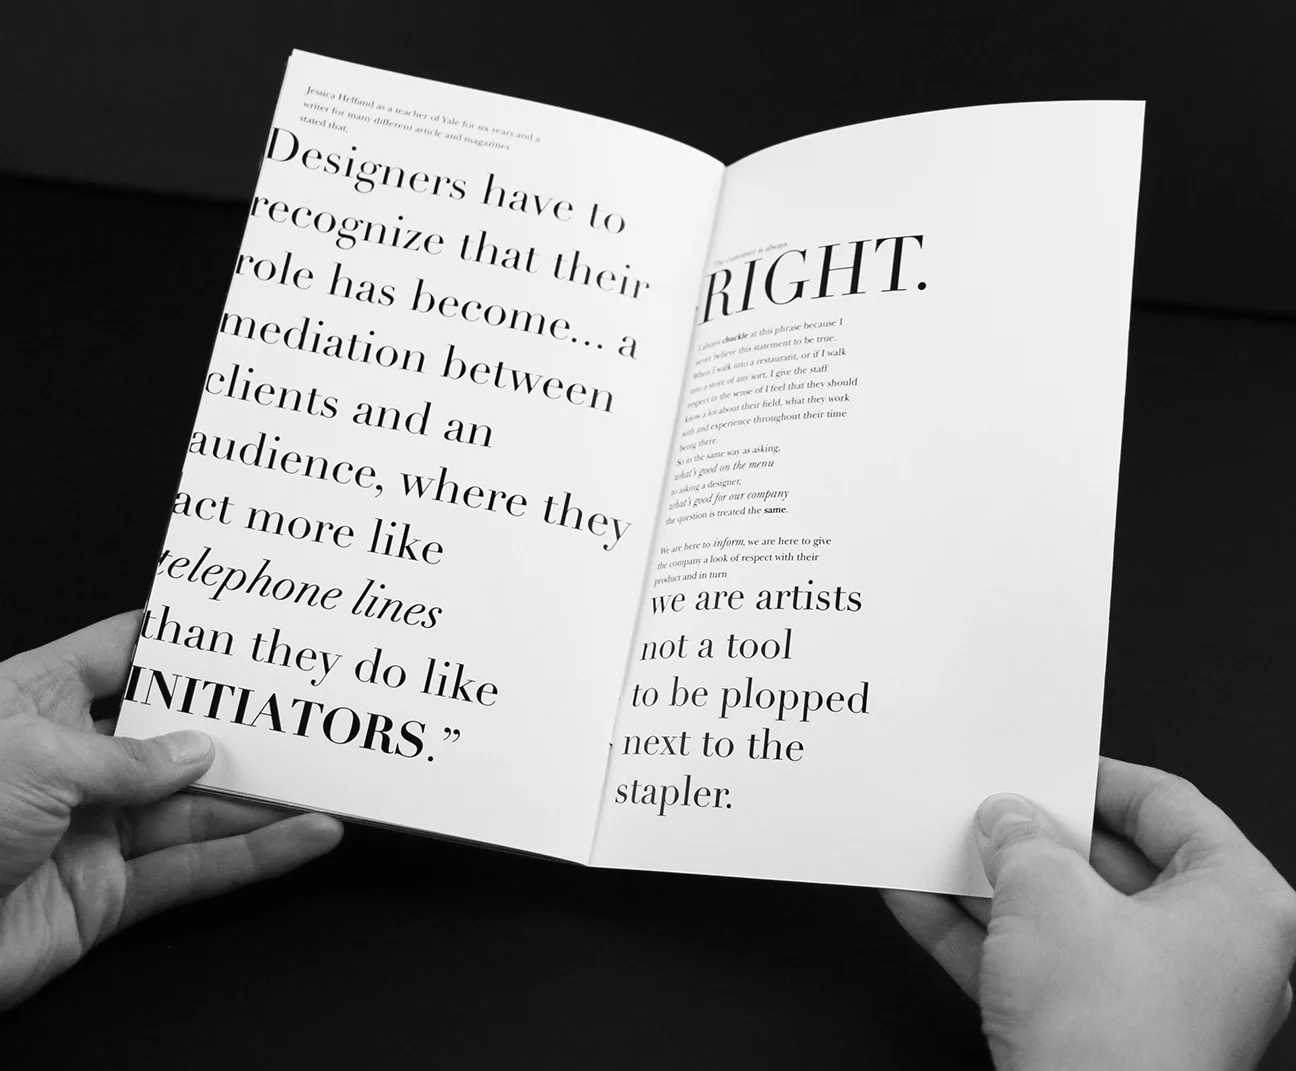 Jessica Helfand as a teacher of Yale for six years and a
writer for many different article and magazines
stated that,
Designers have to
recognize that their
role has become... a
mediation between
clients and an
audience, where they
act more like
telephone lines
than they do like
INITIATORS.”
The customer is always
RIGHT.
I always chuckle at this phrase because I
never believe this statement to be true.
When I walk into a restaurant, or if I walk
into a store of any sort, I give the staff
respect in the sense of I feel that they should
know a lot about their field, what they work
with and experience throughout their time
being there.
So in the same way as asking,
what's good on the menu
to asking a designer,
what's good for our company
the question is treated the same.
We are here to inform, we are here to give
the company a look of respect with their
product and in turn
we are artists
not a tool
to be plopped
next to the
stapler.